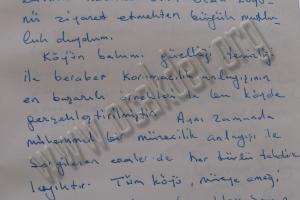 nü ziyaret etmekten büyük mutlu-
luk duydum.
Köyün bakımı güzelliği temizliği
ile beraber korumacılık anlayışının
en başarılı örnekleri bu köyde
gerçekleştirilmiştir. Aynı zamanda
mükemmel bir müzecilik anlayışı ile
sergilenen eserler de her türlü takdire
layıktır. Tüm köyü, müzeye emeği